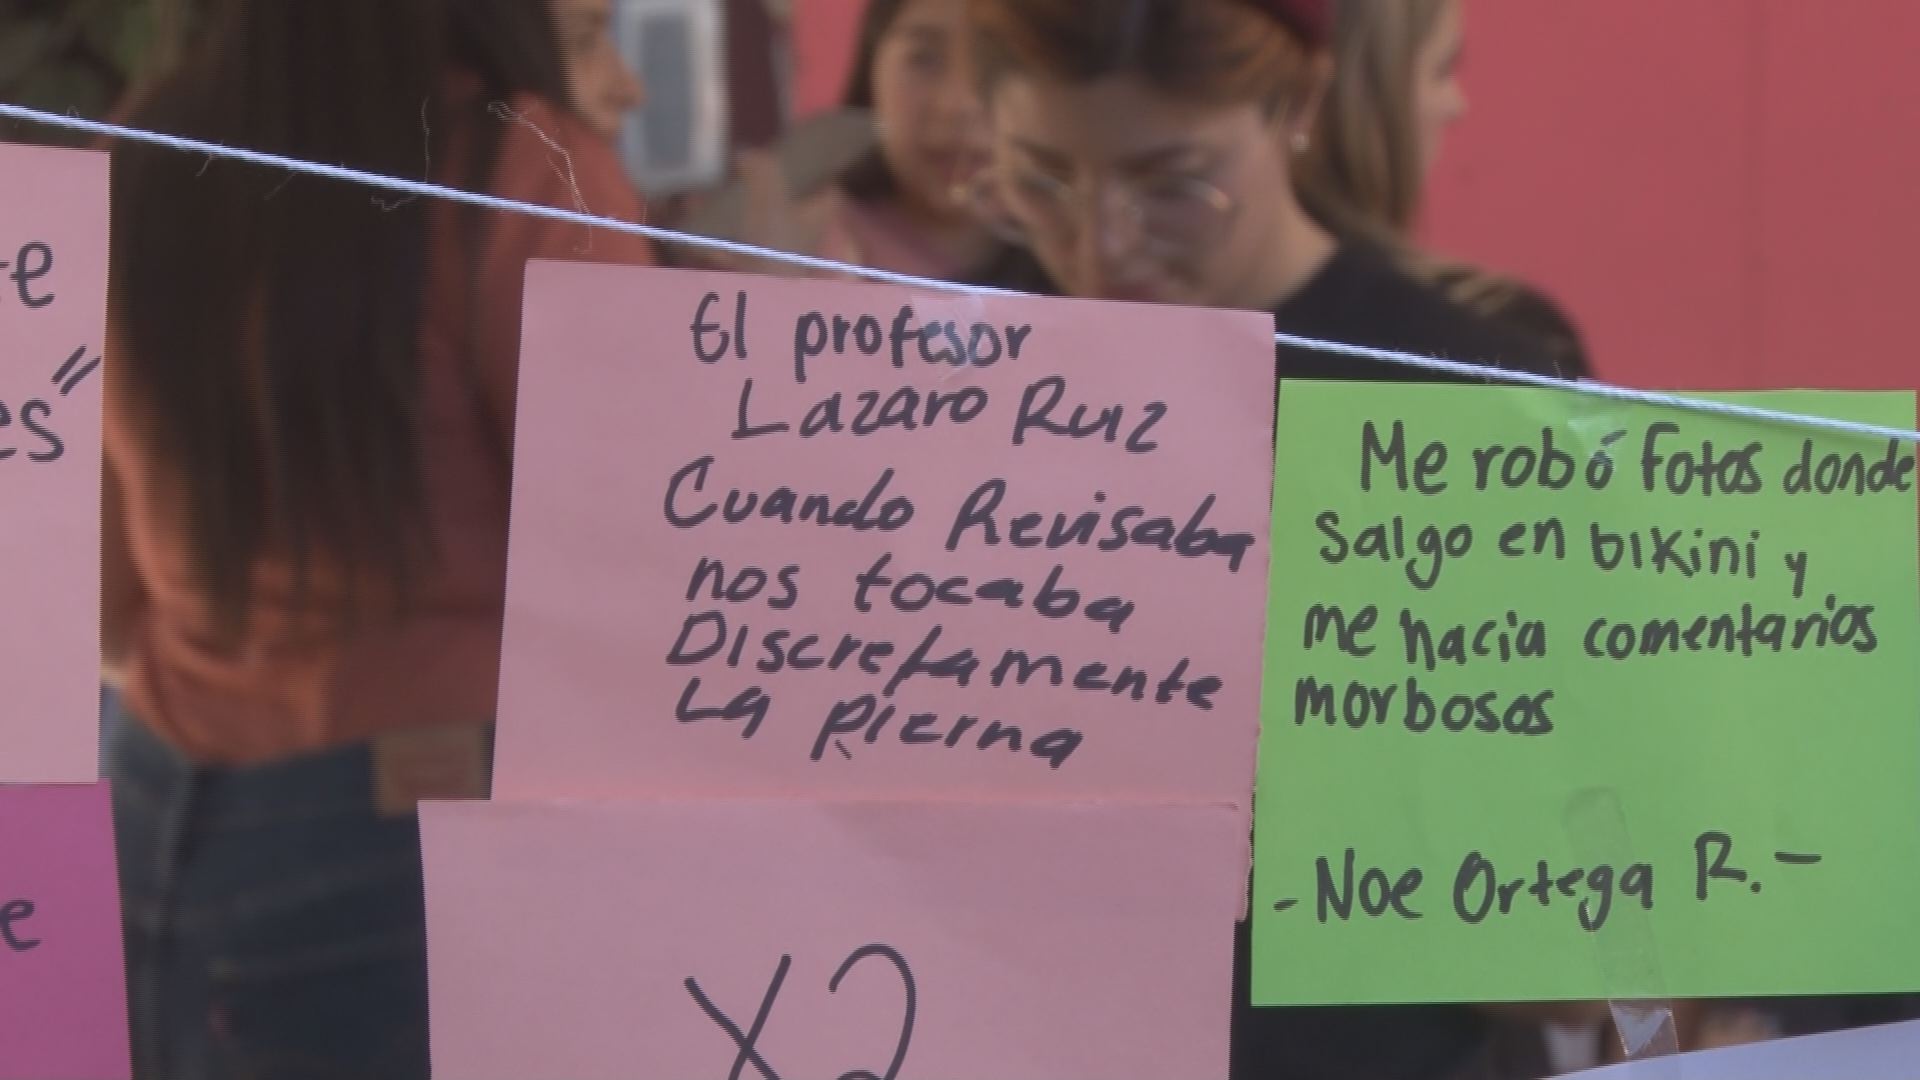 te
es"
e
El profesor
Lazaro Ruiz
Cuando Revisaba
nos tocaba
Discretamente
La Pierna
X2
Me robó fotos donde
salgo en bikini y
me hacia comentarios
morbosos
- Noe Ortega R. -